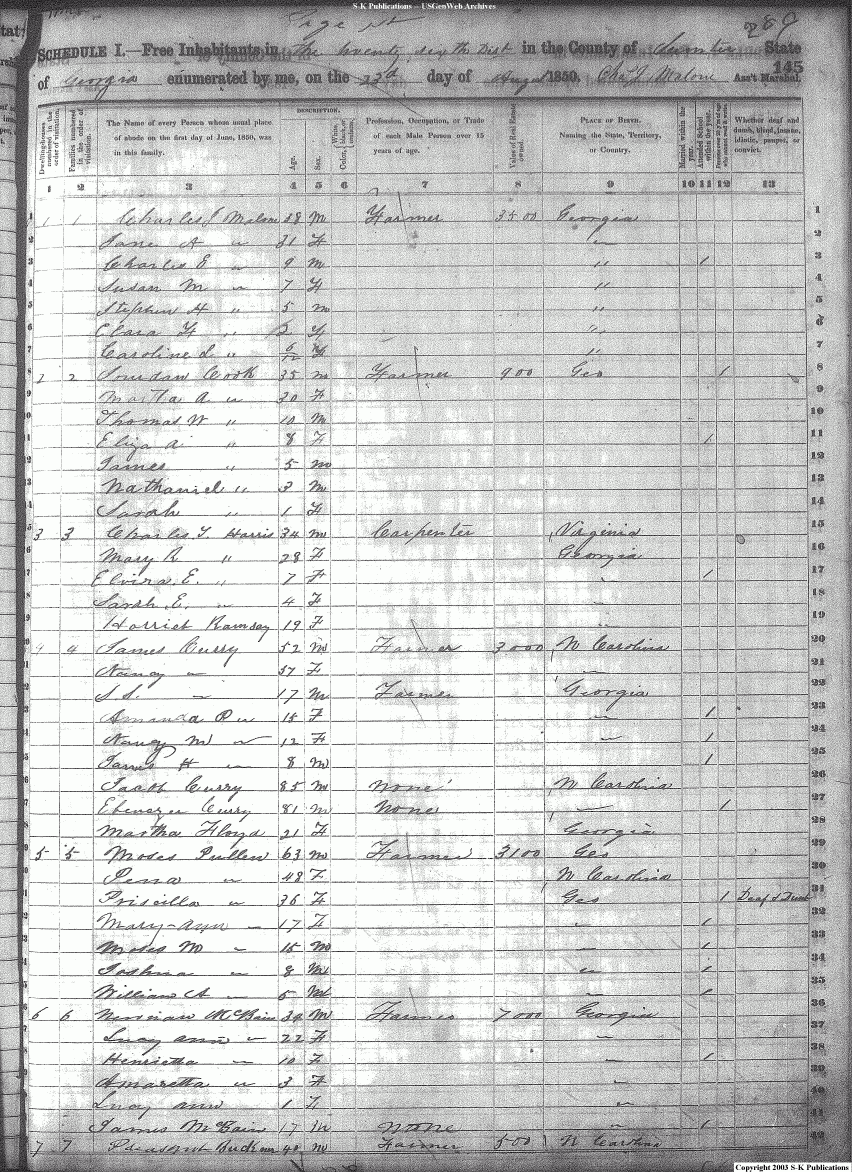 S-K Publications -- USGenWeb Archives
Page
289
SCHEDULE I.—Free Inhabitants in the twenty sixth Dist in the County of Sumter State
145
of Georgia enumerated by me, on the 23d day of Augst 1850. Chas J Malone Ass't Marshal.
Dwelling-houses numbered in the order of visitation.
Families numbered in the order of visitation.
The Name of every Person whose usual place of abode on the first day of June, 1850, was in this family.
DESCRIPTION.
Age.
Sex.
Color, White, black, or mulatto.
Profession, Occupation, or Trade of each Male Person over 15 years of age.
Value of Real Estate owned.
PLACE OF BIRTH. Naming the State, Territory, or Country.
Married within the year.
Attended School within the year.
Whether deaf and dumb, blind, insane, idiotic, pauper, or convict.
1 2 3 4 5 6 7 8 9 10 11 12 13
1 1 1 Charles J Malone 38 M Farmer 3500 Georgia 1
2 Jane A " 31 F " 2
3 Charles E " 9 M " 1 3
4 Susan M " 7 F " 4
5 Stephen H " 5 M " 5
6 Clara F " 2 F " 6
7 Caroline L " 6/12 F " 7
8 2 2 Cook 35 M Farmer 900 Geo 1 8
9 Martha A " 30 F 9
10 Thomas W " 10 M 10
11 Eliza A " 8 F 1 11
12 James " 5 M 12
13 Nathaniel " 3 M 13
14 Sarah " 1 F 14
15 3 3 Charles T. Harris 34 M Carpenter Virginia 15
16 Mary R " 28 F Georgia 16
17 Elvira E. " 7 F " 1 17
18 Sarah E. " 4 F " 18
19 Harriet Ramsay 19 F " 19
20 4 4 James Curry 52 M Farmer 3000 N Carolina 20
21 Nancy " 57 F " 21
22 S.S. " 17 M Farmer Georgia 22
23 Amanda " 15 F " 1 23
24 Nancy M " 12 F " 1 24
25 James H " 8 M 1 25
26 Jacob Curry 85 M None N Carolina 26
27 Ebenezer Curry 81 M None " 1 27
28 Martha Floyd 21 F Georgia 28
29 5 5 Moses Pullen 63 M Farmer 3100 Geo 29
30 " 48 F N Carolina 30
31 Priscilla " 36 F Geo 1 Deaf & Dumb 31
32 Mary-Ann " 17 F " 1 32
33 Moses M " 15 M " 1 33
34 Joshua " 8 M " 1 34
35 William A " 5 M " 1 35
36 6 6 McBain M Farmer 7000 Georgia 36
37 Lucy Ann " 22 F " 37
38 Henrietta " 10 F " 1 38
39 Amaretta " 3 F " 39
40 Lucy Ann 1 F " 40
41 James McBain 17 M None " 1 41
42 7 7 Pleasant 40 M Farmer 500 N Carolina 42
Copyright 2003 S-K Publications